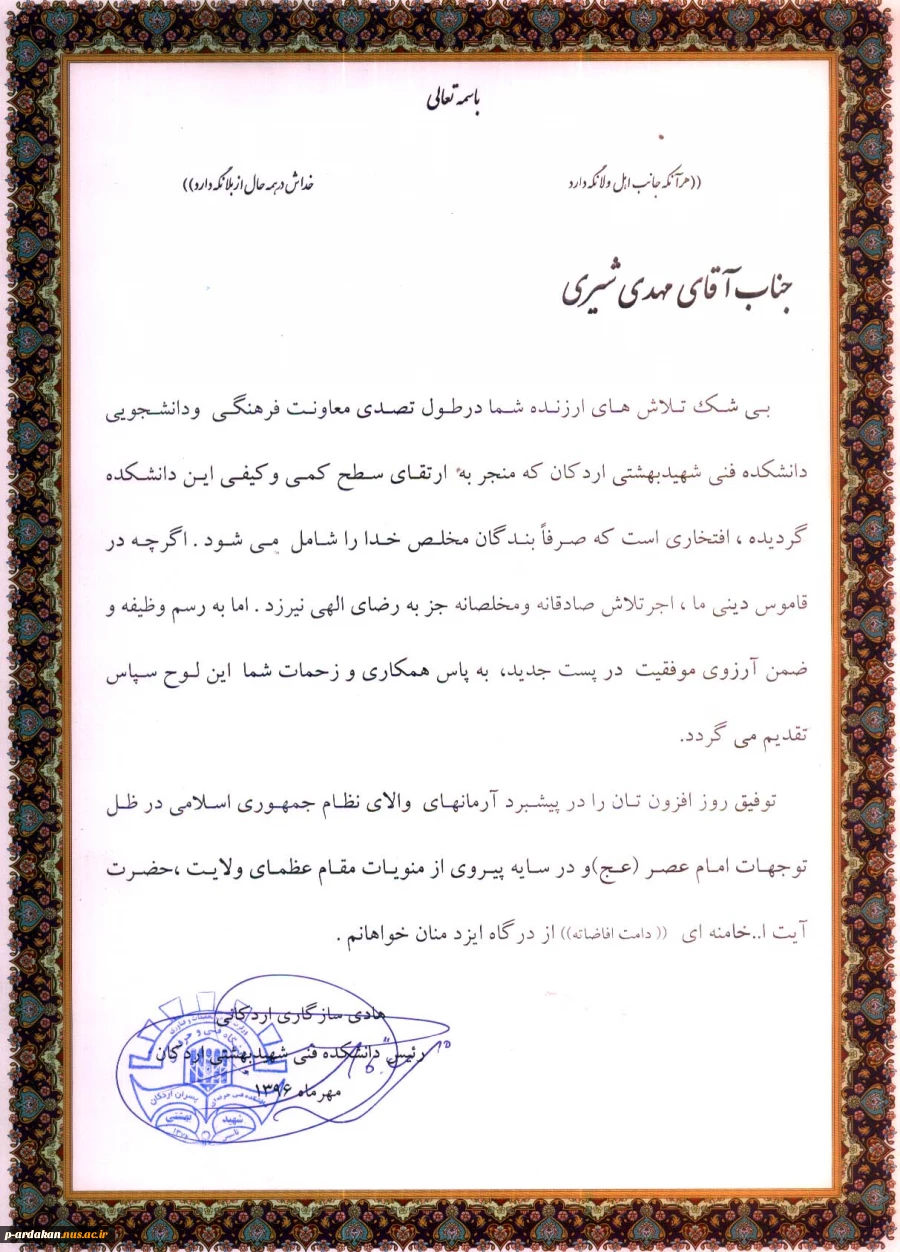 باسمه تعالی
((هرآنکه جانب اهل ولا نگه دارد خداش در همه حال از بلا نگه دارد))
جناب آقای مهدی شیری
بی شک تلاش های ارزنده شما درطول تصدی معاونت فرهنگی ودانشجویی
دانشکده فنی شهیدبهشتی اردکان که منجر به ارتقای سطح کمی وکیفی این دانشکده
گردیده ، افتخاری است که صرفاً بندگان مخلص خدا را شامل می شود . اگرچه در
قاموس دینی ما ، اجرتلاش صادقانه ومخلصانه جز به رضای الهی نیرزد . اما به رسم وظیفه و
ضمن آرزوی موفقیت در پست جدید، به پاس همکاری و زحمات شما این لوح سپاس
تقدیم می گردد.
توفیق روز افزون تان را در پیشبرد آرمانهای والای نظام جمهوری اسلامی در ظل
توجهات امام عصر (عج)و در سایه پیروی از منویات مقام عظمای ولایت ،حضرت
آیت ا..خامنه ای (( دامت افاضاته)) از درگاه ایزد منان خواهانم .
هادی سازگاری اردکانی
رئیس دانشکده فنی شهیدبهشتی اردکان
مهرماه ۱۳۹۶
پسران اردکان
شهید
بهشتی
p-ardakan.nus.ac.ir